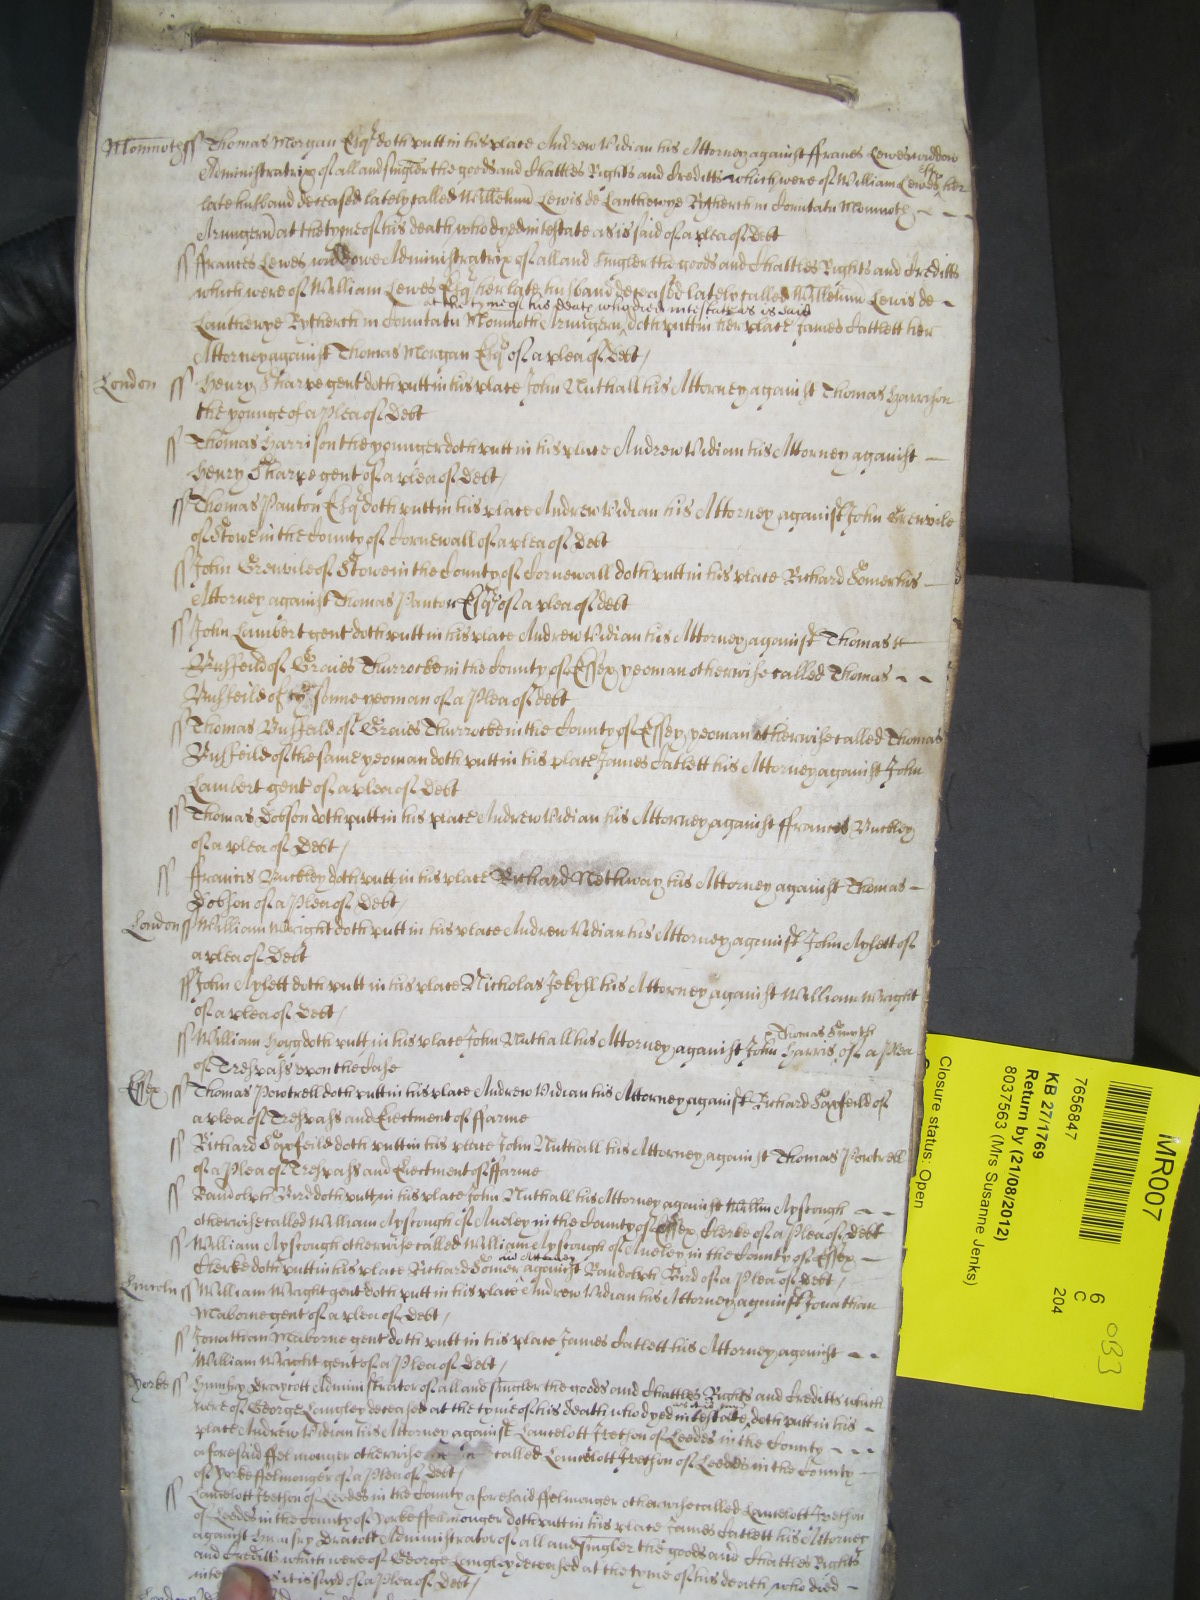 Monmoth ss Thomas Morgan Esqr doth putt in his place Andrew Vidian his Attorney against ffrances Lewes widdow
Administratrix of all and singler the goods and Chattles Rights and Creditts which were of William Lewes Esqr her
late husband deceased lately called Willelmu Lewis de Lanthewye Rytherch in Comitatu Monmoth
Armigeru at the tyme of his death who dyed intestate as is said of a plea of Debt
ss ffrances Lewes widdowe Administratrix of all and singler the goods and Chattles Rights and Creditts
which were of William Lewes Esqr her late husband deceased lately called Willelmu Lewis de
at the tyme of his death who died intestate as is said
Lanthewye Rytherch in Comitatu Monmoth Armigeru doth putt in her place James Catlett her
Attorney against Thomas Morgan Esqr of a plea of Debt
London ss Henry Sharpe gent doth putt in his place John Nuthall his Attorney against Thomas Harrison
the younge of a Plea of Debt
ss Thomas Harrison the younger doth putt in his place Andrew Vidian his Attorney against
Henry Sharpe gent of a plea of Debt
ss Thomas Panton Esqr doth putt in his place Andrew Vidian his Attorney against John Grenvile
of Stowe in the County of Cornewall of a plea of Debt
ss John Grenvile of Stowe in the County of Cornewall doth putt in his place Richard Somer his
Attorney against Thomas Panton Esqr of a plea of debt
ss John Lambert gent doth putt in his place Andrew Vidian his Attorney against Thomas
Bushfeild of Graies Thurrocke in the County of Essex yeoman otherwise called Thomas
Bushfeild of the same yeoman of a Plea of debt
ss Thomas Bushfeild of Graies Thurrocke in the County of Essex yeoman otherwise called Thomas
Bushfeild of the same yeoman doth putt in his place James Catlett his Attorney against John
Lambert gent of a plea of Debt
ss Thomas Dobson doth putt in his place Andrew Vidian his Attorney against ffrances Buckley
of a plea of Debt
ss ffrancis Buckley doth putt in his place Richard Nothway his Attorney against Thomas
Dobson of a Plea of Debt
London ss William Wright doth putt in his place Andrew Vidian his Attorney against John Aylett of
a plea of Debt
ss John Aylett doth putt in his place Nicholas Jekyll his Attorney against William Wright
of a plea of Debt
Thomas Smyth
ss William Hogg doth putt in his place John Nuthall his Attorney against John Harris of a plea
of Trespass upon the Case
Essex ss Thomas Powtrell doth putt in his place Andrew Vidian his Attorney against Richard Saxfeild of
a plea of Trespass and Ejectment of ffarme
ss Richard Saxfeild doth putt in his place John Nuthall his Attorney against Thomas Powtrell
of a Plea of Trespass and Ejectment of ffarme
ss Randolph Bird doth putt in his place John Nuthall his Attorney against Willm Ayscough
otherwise called William Ayscough of Audley in the County of Essex Clerke of a Plea of Debt
ss William Ayscough otherwise called William Ayscough of Audley in the County of Essex
his Attorney
Clerke doth putt in his place Richard Somer against Randolph Bird of a Plea of Debt
Lincoln ss William Wright gent doth putt in his place Andrew Vidian his Attorney against Jonathan
Maborne gent of a plea of Debt
ss Jonathan Maborne gent doth putt in his place James Catlett his Attorney against
William Wright gent of a Plea of Debt
Yorke ss Humfry Draycott Administrator of all and singler the goods and Chattles Rights and Creditts which
were of George Langley deceased at the tyme of his death who dyed intestate doth putt in his
place Andrew Vidian his Attorney against Lancelott Iveson of Leedes in the County
aforesaid ffelmonger otherwise called Lancelott Iveson of Leedes in the County
of Yorke ffelmonger of a Plea of Debt
ss Lancelott Iveson of Leedes in the County aforesaid ffelmonger otherwise called Lancelott Iveson
of Leedes in the County of Yorke ffelmonger doth putt in his place James Catlett his Attorney
against Humfry Dracott Administrator of all and singler the goods and Chattles Rights
and Creditts which were of George Langley deceased at the tyme of his death who died
as it is sayd of a Plea of Debt
MR007
7656847
KB 27/1769
Return by (21/08/2012)
8037563 (Mrs Susanne Jenks)
Closure status: Open
6
C
204
033